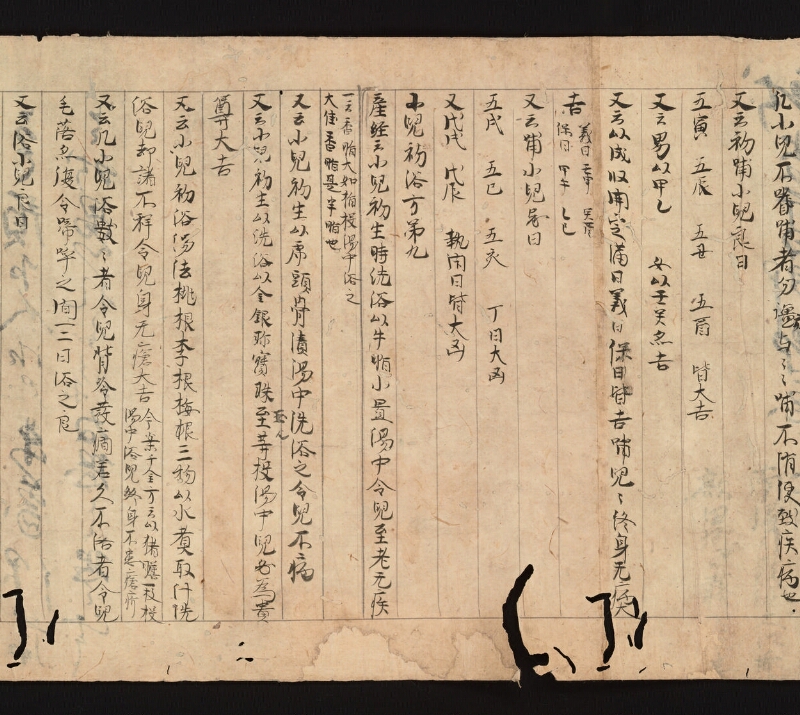 凡小兒不嗜哺者勿強与之々哺不消便致疾病也
又云初哺小兒良日
五寅 五辰 五丑 五酉 皆大吉
又云男以甲乙 女以壬癸為吉
又云以成收開定滿日義日保日皆吉哺兒々終身无病大
吉 義日 壬申 癸酉
保日 甲午 乙巳
又云哺小兒忌日
五戌 五巳 五亥 丁日大凶
又戊戌 戊辰 執閇日皆大凶
小兒初浴方第九
產經云小兒初生時洗浴以牛脂小置湯中令兒至老无疾
一云香脂大如指投湯中浴之
大佳香脂是牛脂也
又云小兒初生以虎頭骨漬湯中洗浴之令兒不病
又云小兒初生以洗浴以金銀珎寶珠玉等投湯中兒必為貴
尊大吉
又云小兒初浴湯法桃根李根梅根三物以水煮取汁洗
浴兒却諸不祥令兒身无瘡大吉 今案千金方云以猪膽一枚投
湯中浴兒終身不患瘡疥
又云凡小兒浴數々者令兒背冷發癇若久不浴者令兒
毛落忽復令啼呼之間一二日浴之良
又云浴小兒良日